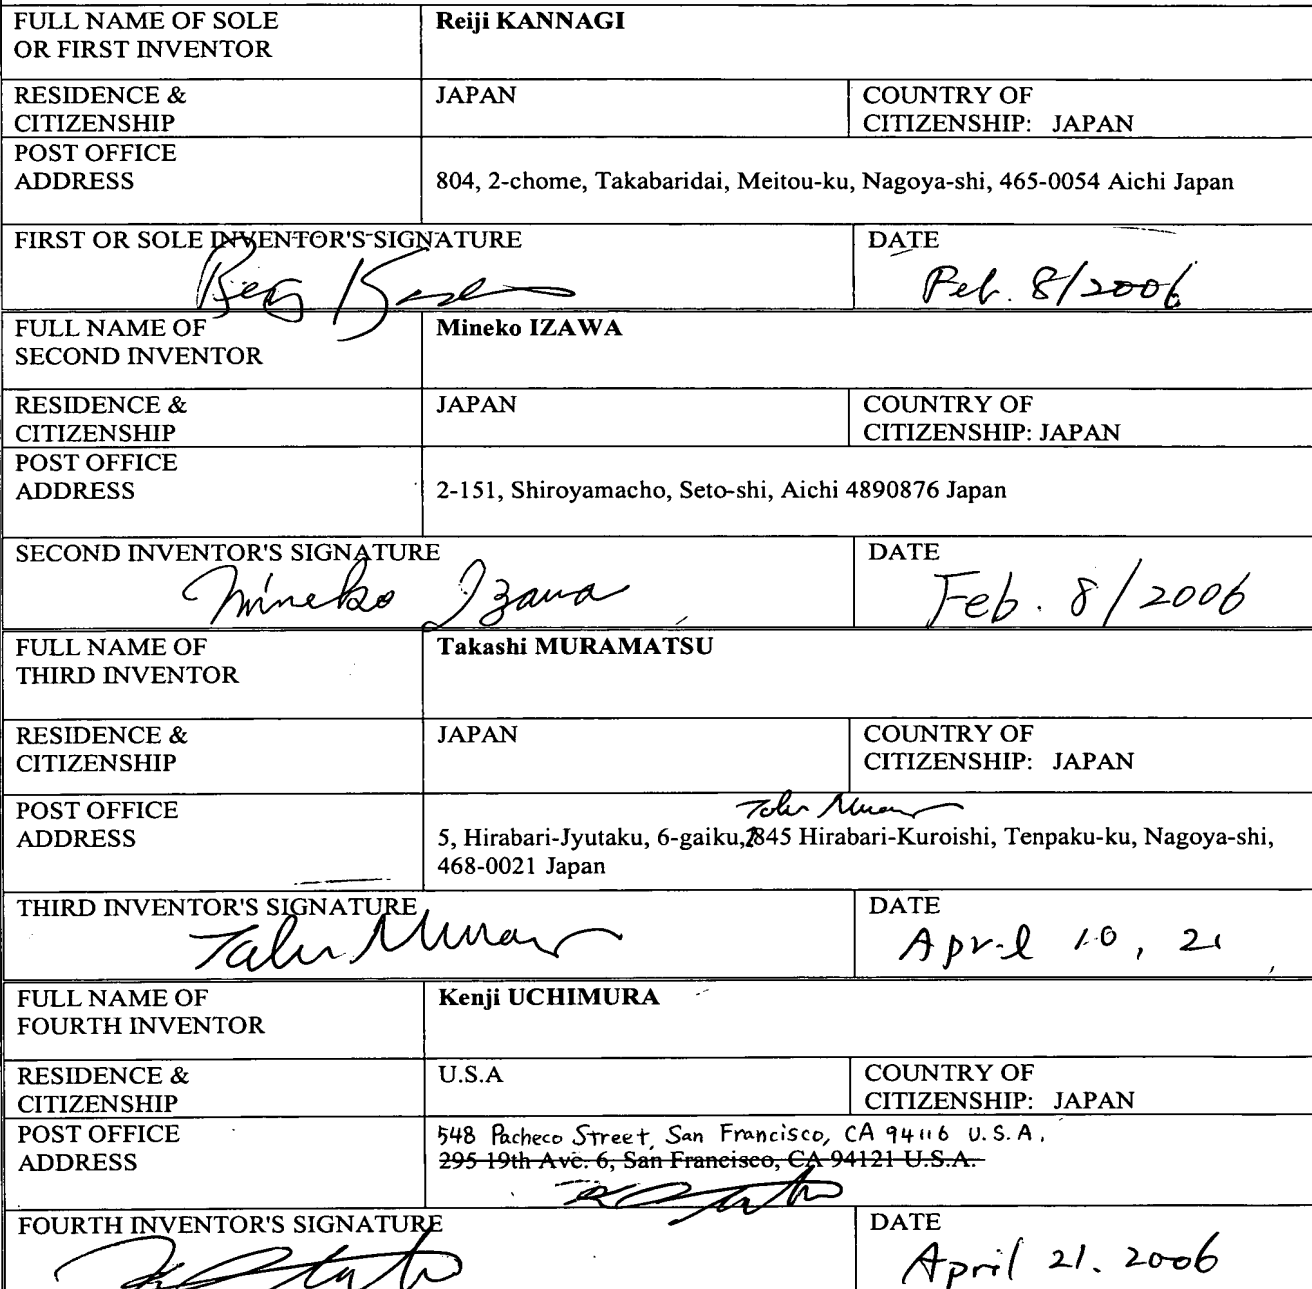 FULL NAME OF SOLE
OR FIRST INVENTOR
Reiji KANNAGI
RESIDENCE &
CITIZENSHIP
JAPAN
COUNTRY OF
CITIZENSHIP: JAPAN
POST OFFICE
ADDRESS
804, 2-chome, Takabaridai, Meitou-ku, Nagoya-shi, 465-0054 Aichi Japan
FIRST OR SOLE INVENTOR'S SIGNATURE
DATE
Feb. 8/2006
FULL NAME OF
SECOND INVENTOR
Mineko IZAWA
RESIDENCE &
CITIZENSHIP
JAPAN
COUNTRY OF
CITIZENSHIP: JAPAN
POST OFFICE
ADDRESS
2-151, Shiroyamacho, Seto-shi, Aichi 4890876 Japan
SECOND INVENTOR'S SIGNATURE
Mineko Izawa
DATE
Feb. 8/2006
FULL NAME OF
THIRD INVENTOR
Takashi MURAMATSU
RESIDENCE &
CITIZENSHIP
JAPAN
COUNTRY OF
CITIZENSHIP: JAPAN
POST OFFICE
ADDRESS
5, Hirabari-Jyutaku, 6-gaiku, 2845 Hirabari-Kuroishi, Tenpaku-ku, Nagoya-shi,
468-0021 Japan
THIRD INVENTOR'S SIGNATURE
DATE
April 10, 2
FULL NAME OF
FOURTH INVENTOR
Kenji UCHIMURA
RESIDENCE &
CITIZENSHIP
U.S.A
COUNTRY OF
CITIZENSHIP: JAPAN
POST OFFICE
ADDRESS
548 Pacheco Street, San Francisco, CA 94116 U.S.A.
295 19th Ave. 6, San Francisco, CA 94121 U.S.A.
FOURTH INVENTOR'S SIGNATURE
DATE
April 21. 2006